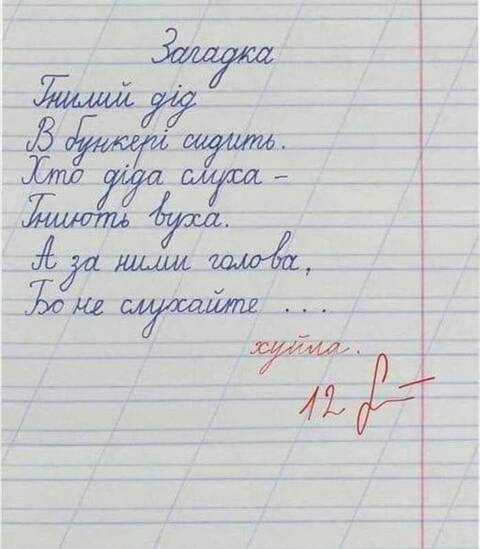 Загадка
Гнилий дід
В бункері сидить.
Хто діда слуха –
Гниють вуха.
А за ними голова,
Бо не слухайте ...
хуйла.
12